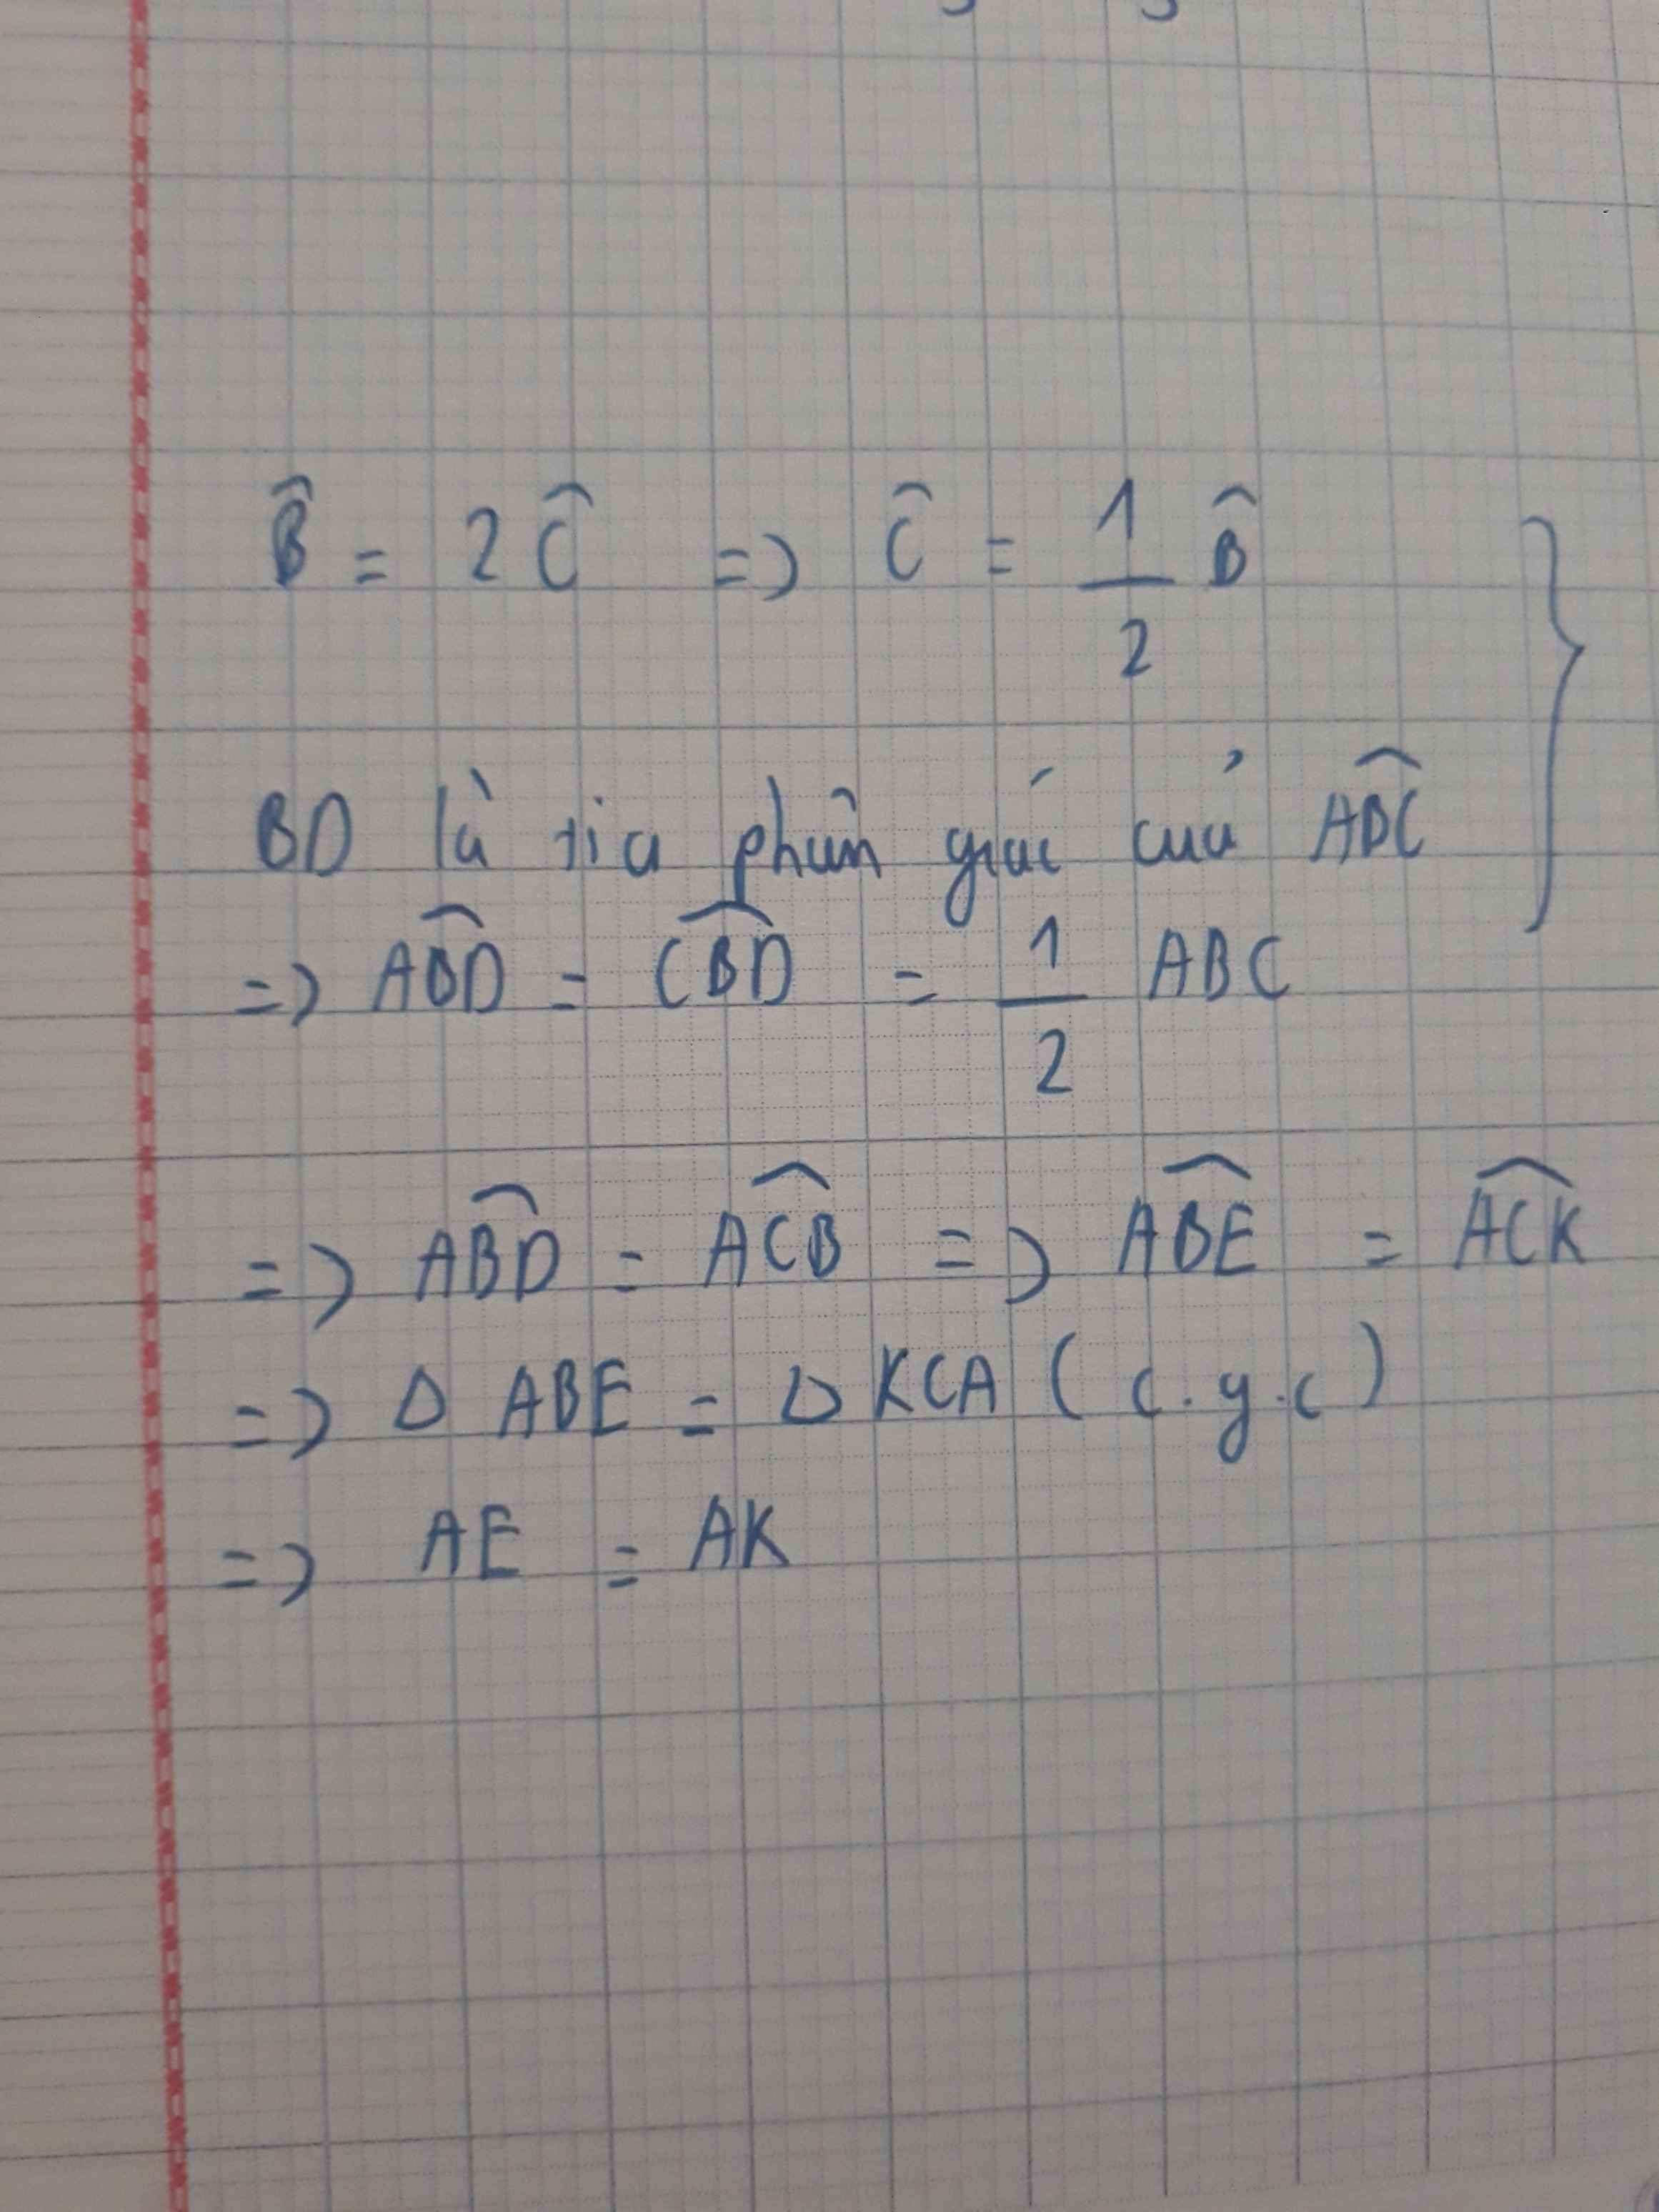 B̂ = 2Ĉ => Ĉ = 1/2 B̂ }
BD là tia phân giác của ∠ABC
=> ∠ABD = ∠CBD = 1/2 ABC
=> ∠ABD = ∠ACB => ∠ABE = ∠ACK
=> Δ ABE = Δ KCA (c.g.c)
=> AE = AK